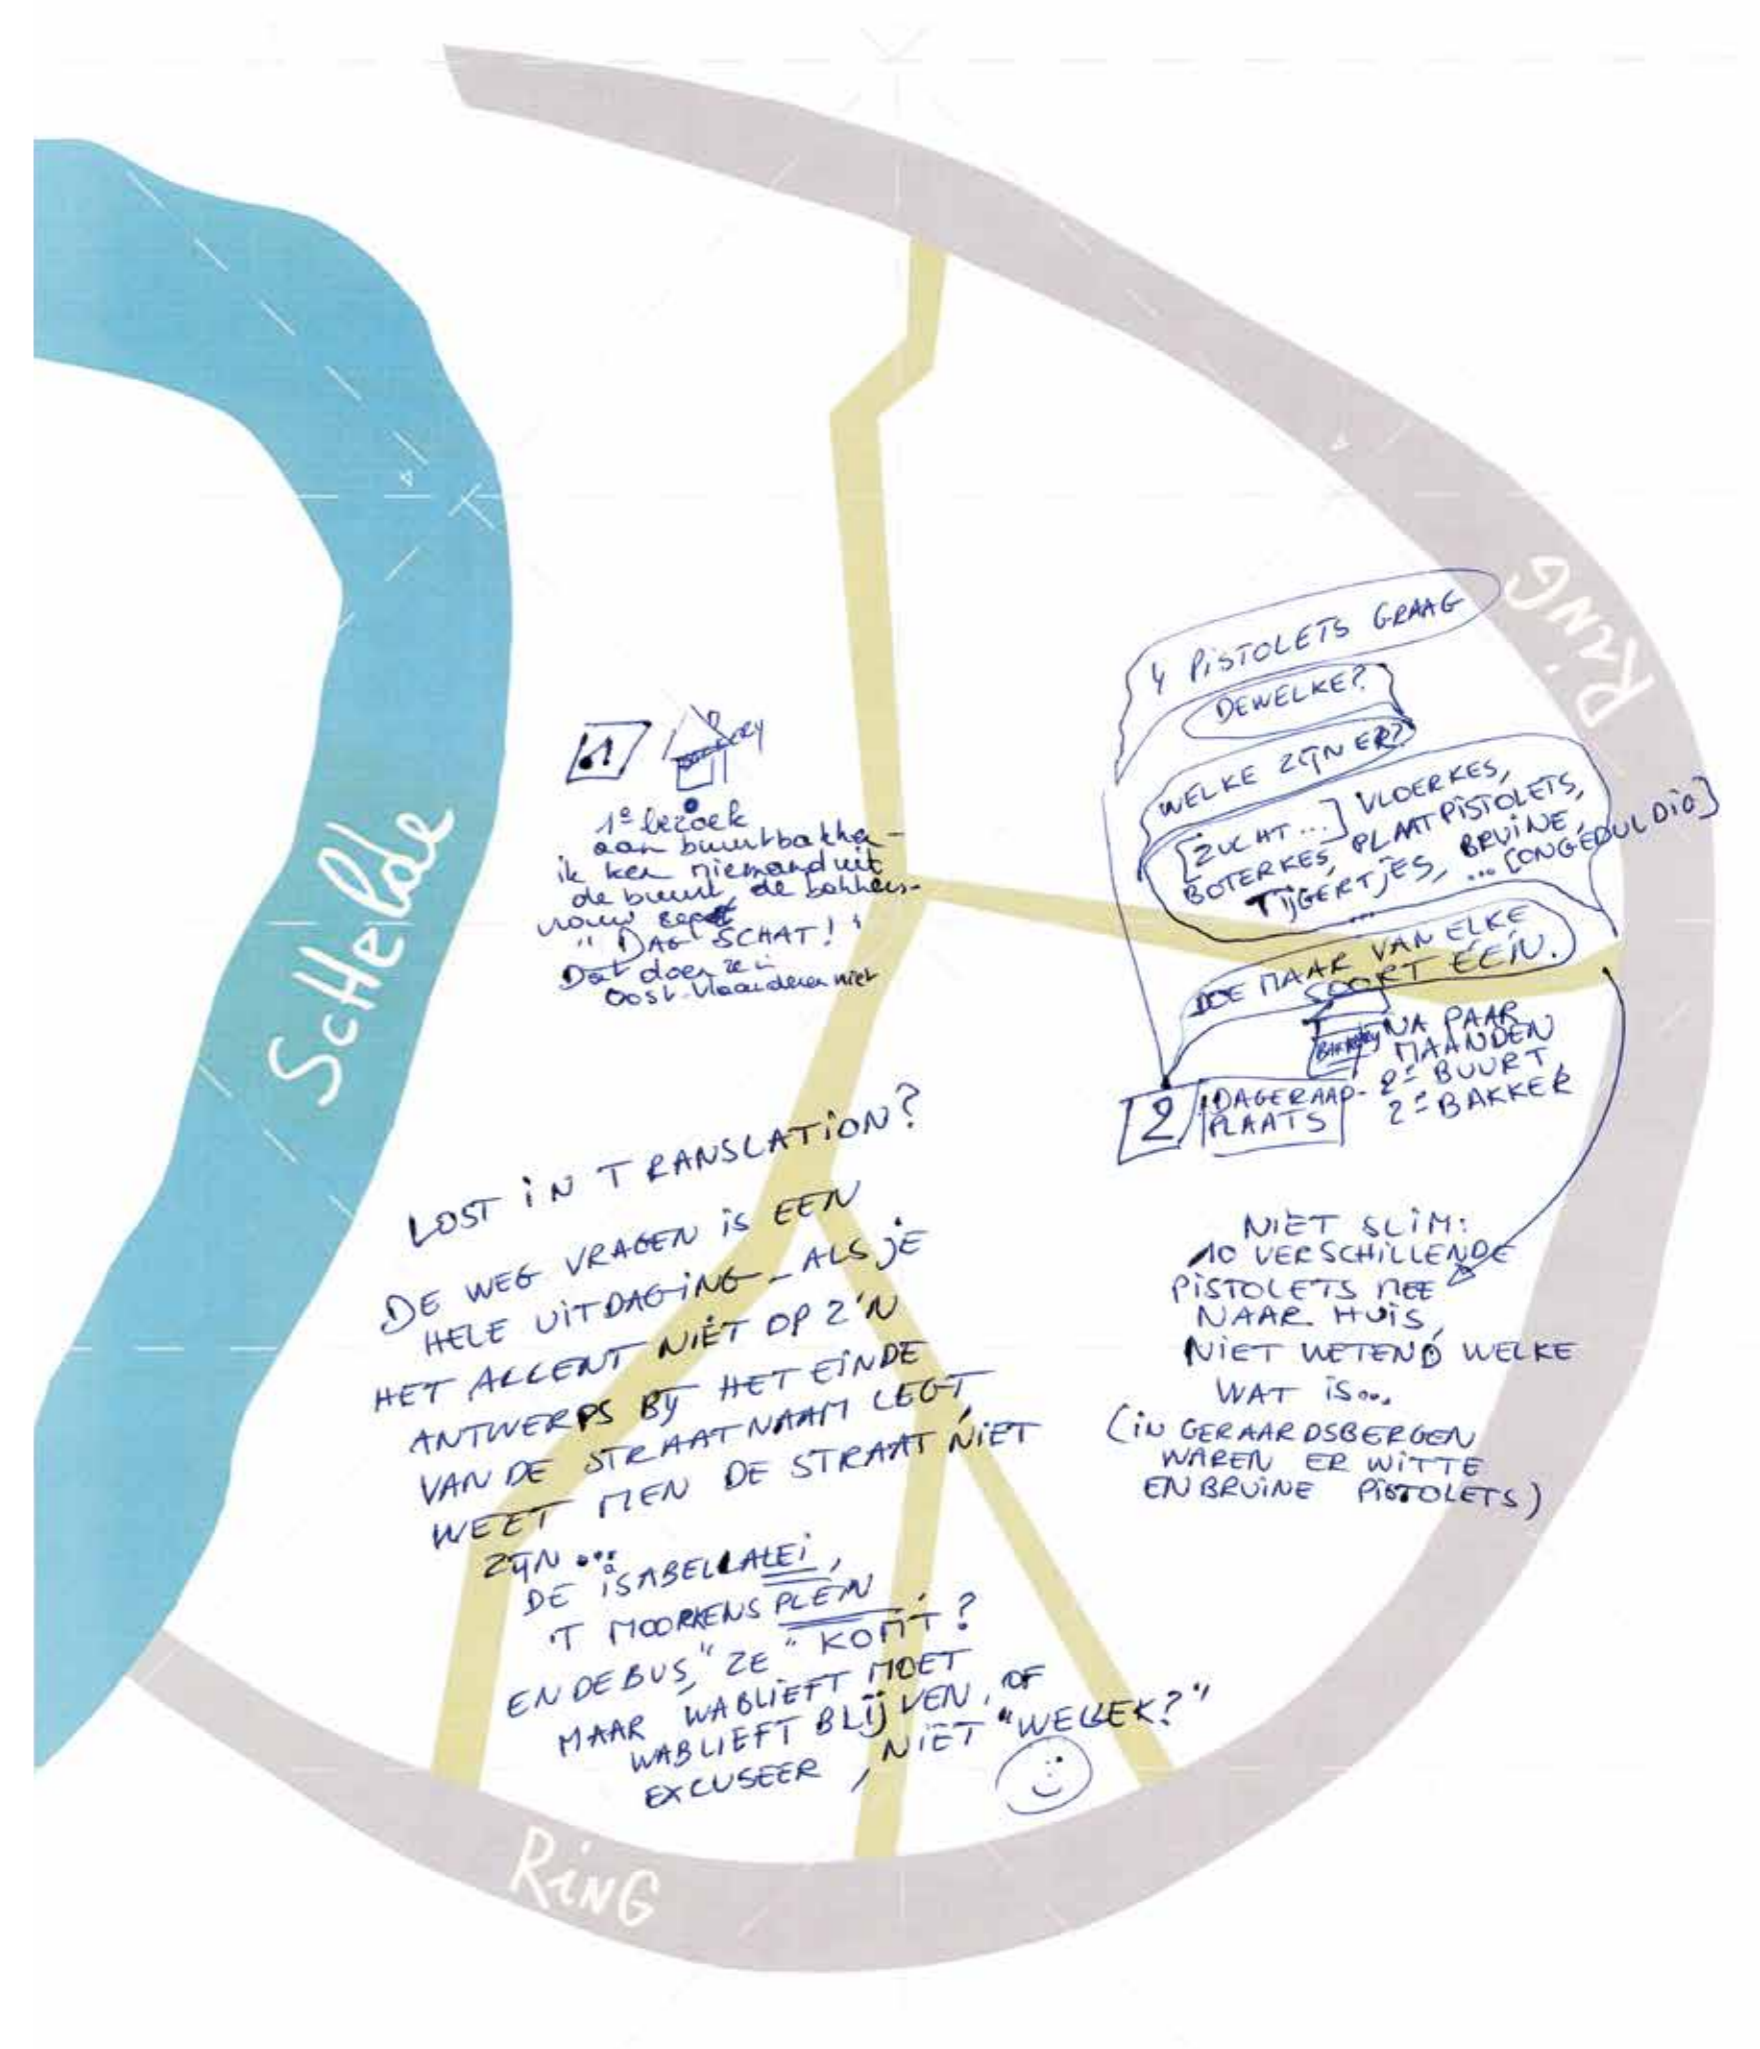 SCHelde
RiNG
RiNG
1
BAKERY
1e bezoek
aan buurtbakker -
ik ken niemand uit
de buurt, de bakkers-
vrouw zegt
" DAG SCHAT! "
Dat doen ze in
Oost-Vlaanderen niet
4 PiSTOLETS GRAAG
DEWELKE?
WELKE ZIJN ER?
[ZUCHT ...] VLOERKES,
BOTERKES, PLAATPiSTOLETS,
TIJGERTJES, BRUiNE,
... [ONGEDULDIG]
...
DOE MAAR VAN ELKE
SOORT ÉÉN.
BAKERY
NA PAAR
MAANDEN
2e BUURT,
2e BAKKER
2
DAGERAAD-
PLAATS
NiET SLiM:
10 VERSCHiLLENDE
PiSTOLETS MEE
NAAR HUiS,
NiET WETEND WELKE
WAT iS...
(iN GERAARDSBERGEN
WAREN ER WiTTE
EN BRUiNE PiSTOLETS)
LOST iN TRANSLATiON?
DE WEG VRAGEN iS EEN
HELE UiTDAGiNG - ALS JE
HET ACCENT NiET OP Z'N
ANTWERPS BIJ HET EiNDE
VAN DE STRAATNAAM LEGT,
WEET MEN DE STRAAT NiET
ZIJN ...
DE iSABELLALEi,
'T MOORKENSPLEiN
EN DE BUS, "ZE" KOMT?
MAAR WABLiEFT MOET
WABLiEFT BLIJVEN, OF
EXCUSEER, NiET "WELLEK?"